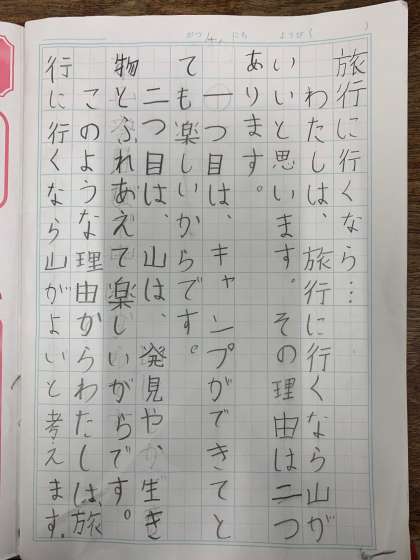 がつ にち ようび（ ）
旅行に行くなら…
わたしは、旅行に行くなら山が
いいと思います。その理由は二つ
あります。
一つ目は、キャンプができてと
ても楽しいからです。
二つ目は、山は、発見や生き
物とふれあえて楽しいからです。
このような理由からわたしは、旅
行に行くなら山がよいと考えます。